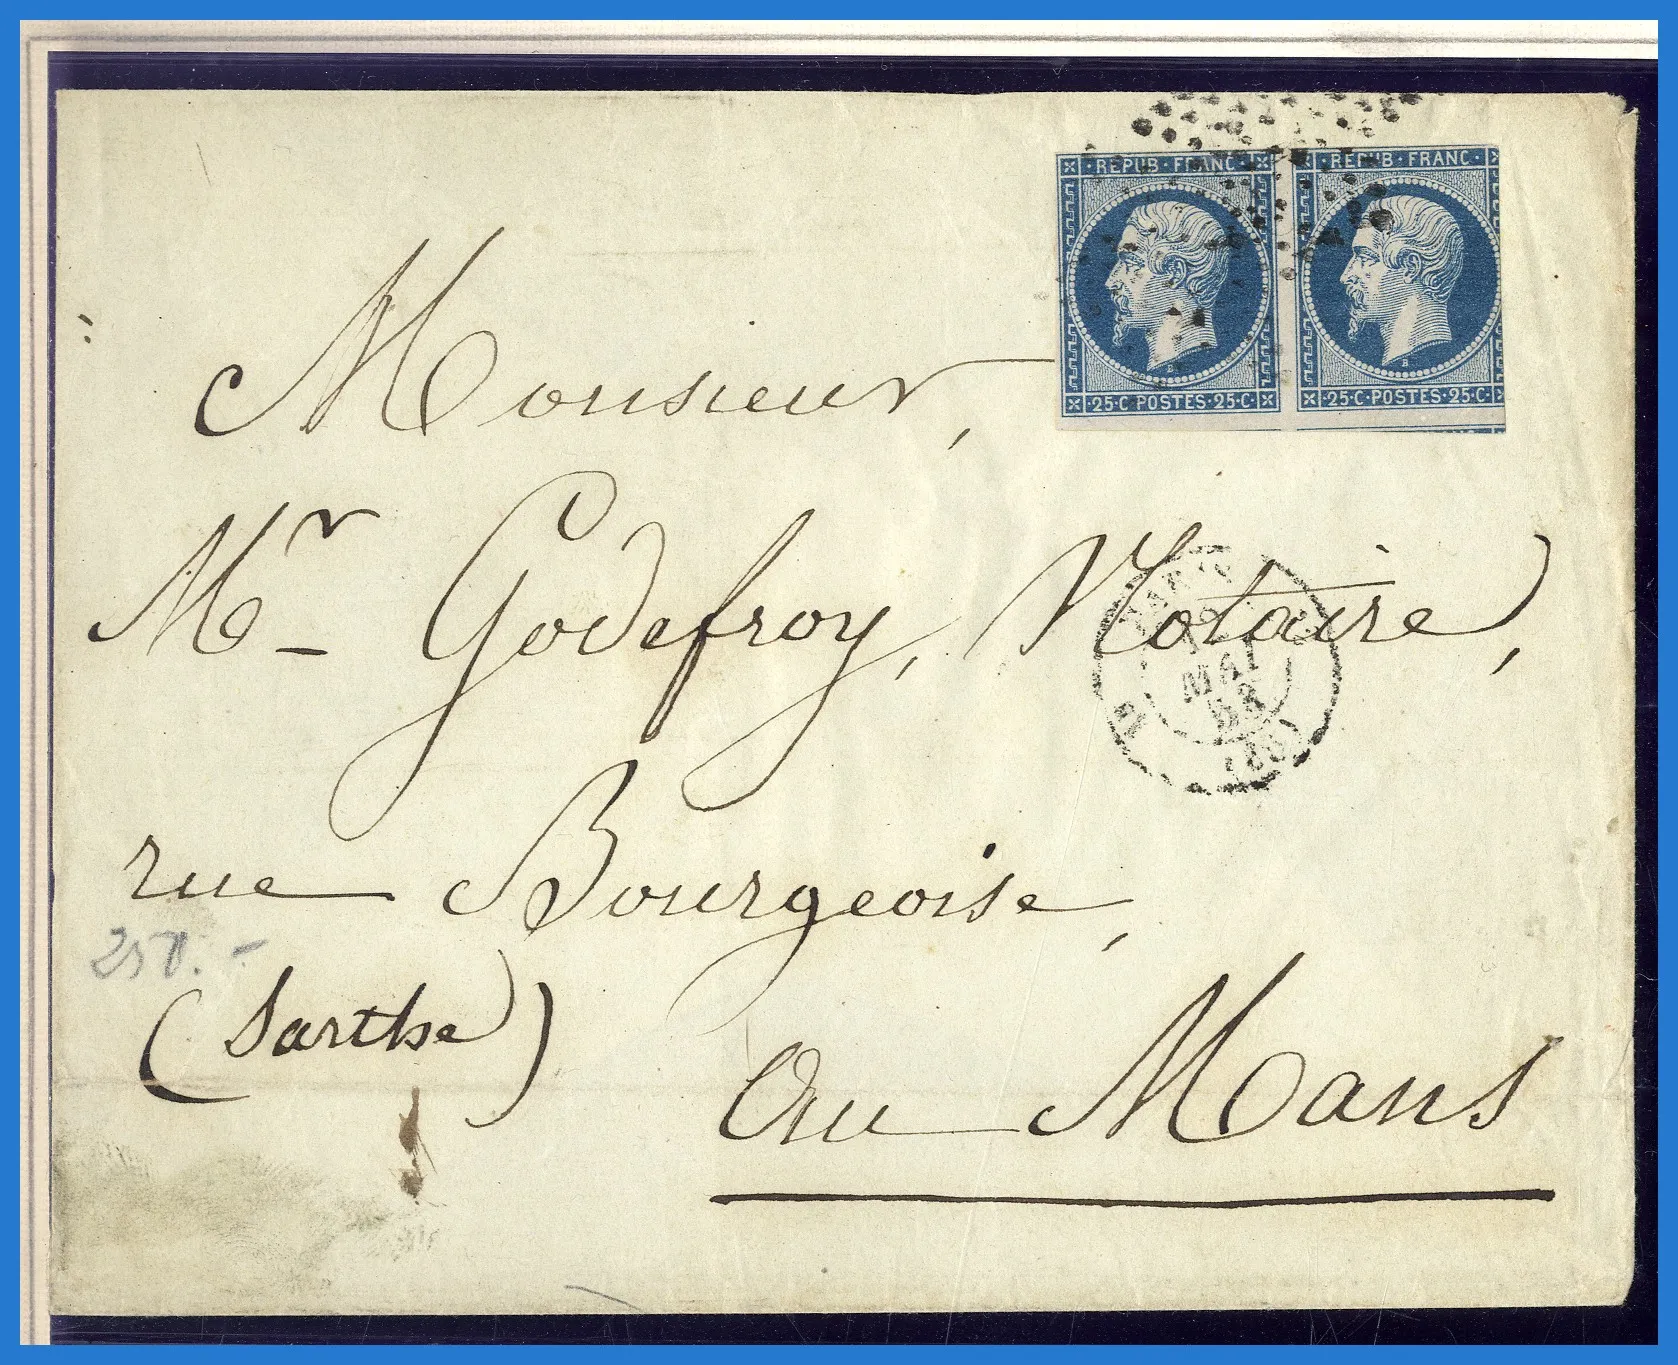 REPUB·FRANC· REPUB·FRANC·
B B
·25·C·POSTES·25·C· ·25·C·POSTES·25·C·
Monsieur,
Mr Godefroy, Notaire,
MAI
53
(60)
rue Bourgeoise,
250.-
(Sarthe)
Au Mans